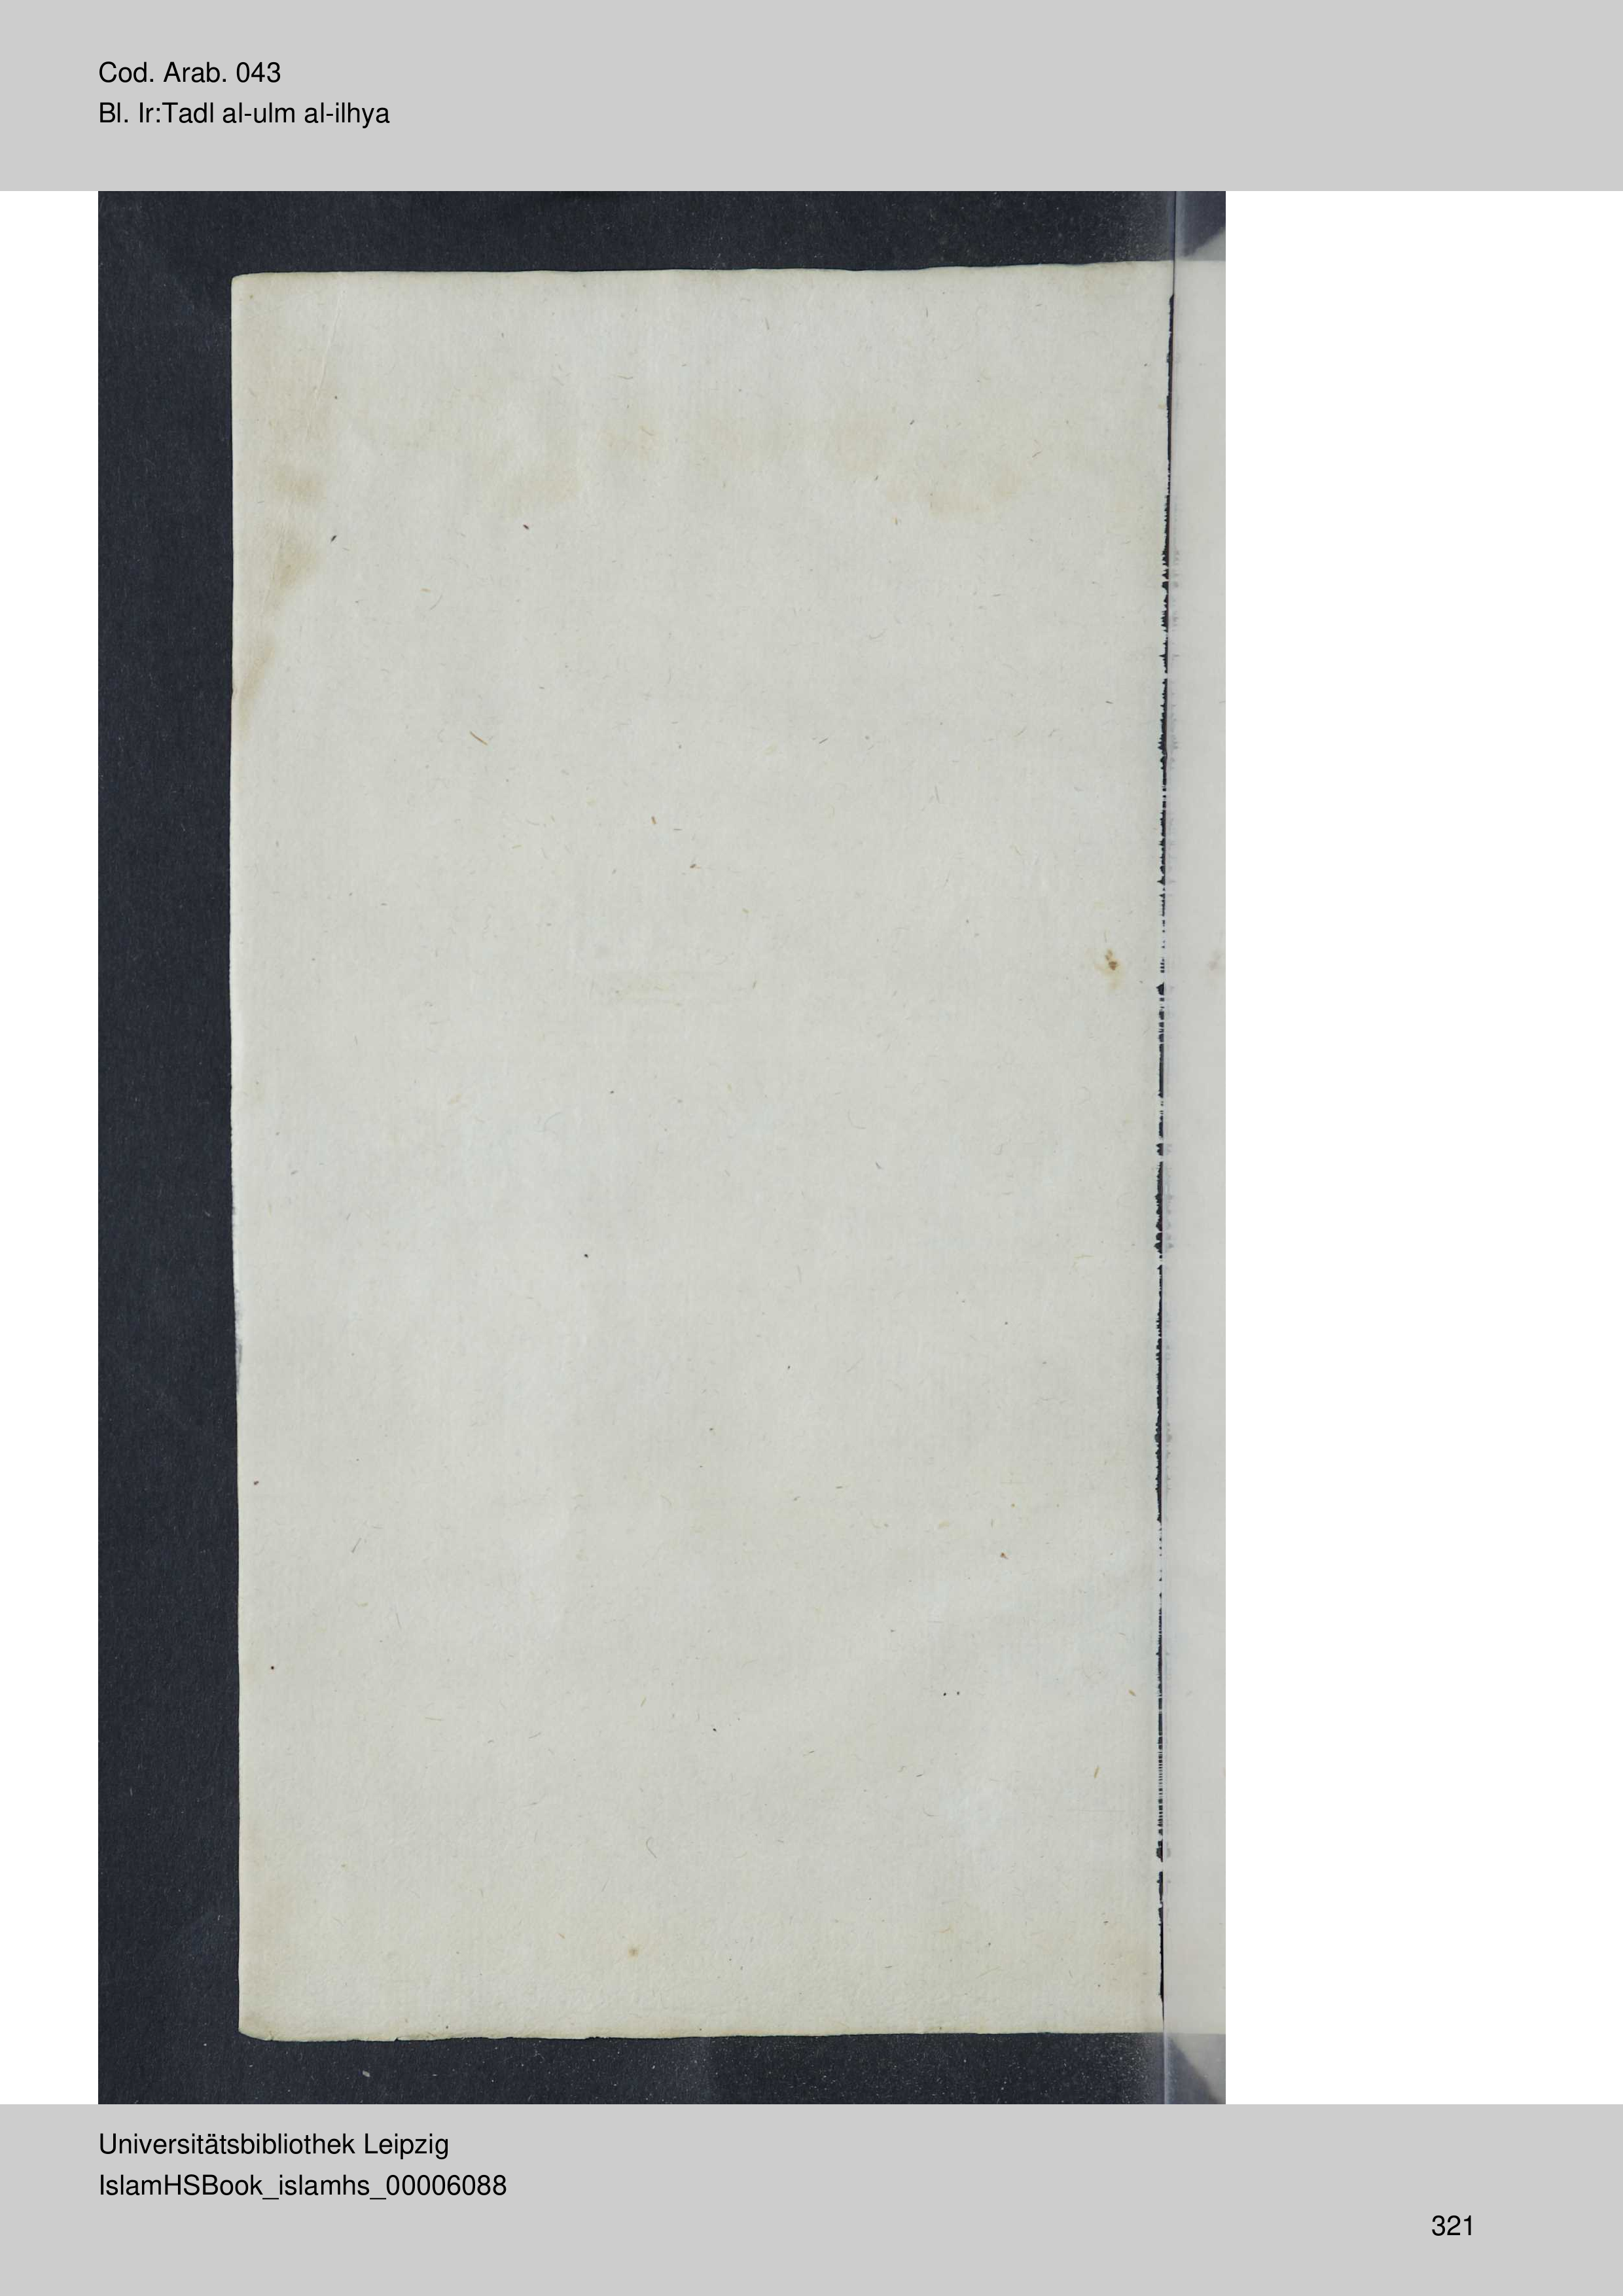 Cod. Arab. 043
Bl. Ir:Tadl al-ulm al-ilhya
Universitätsbibliothek Leipzig
IslamHSBook_islamhs_00006088
321